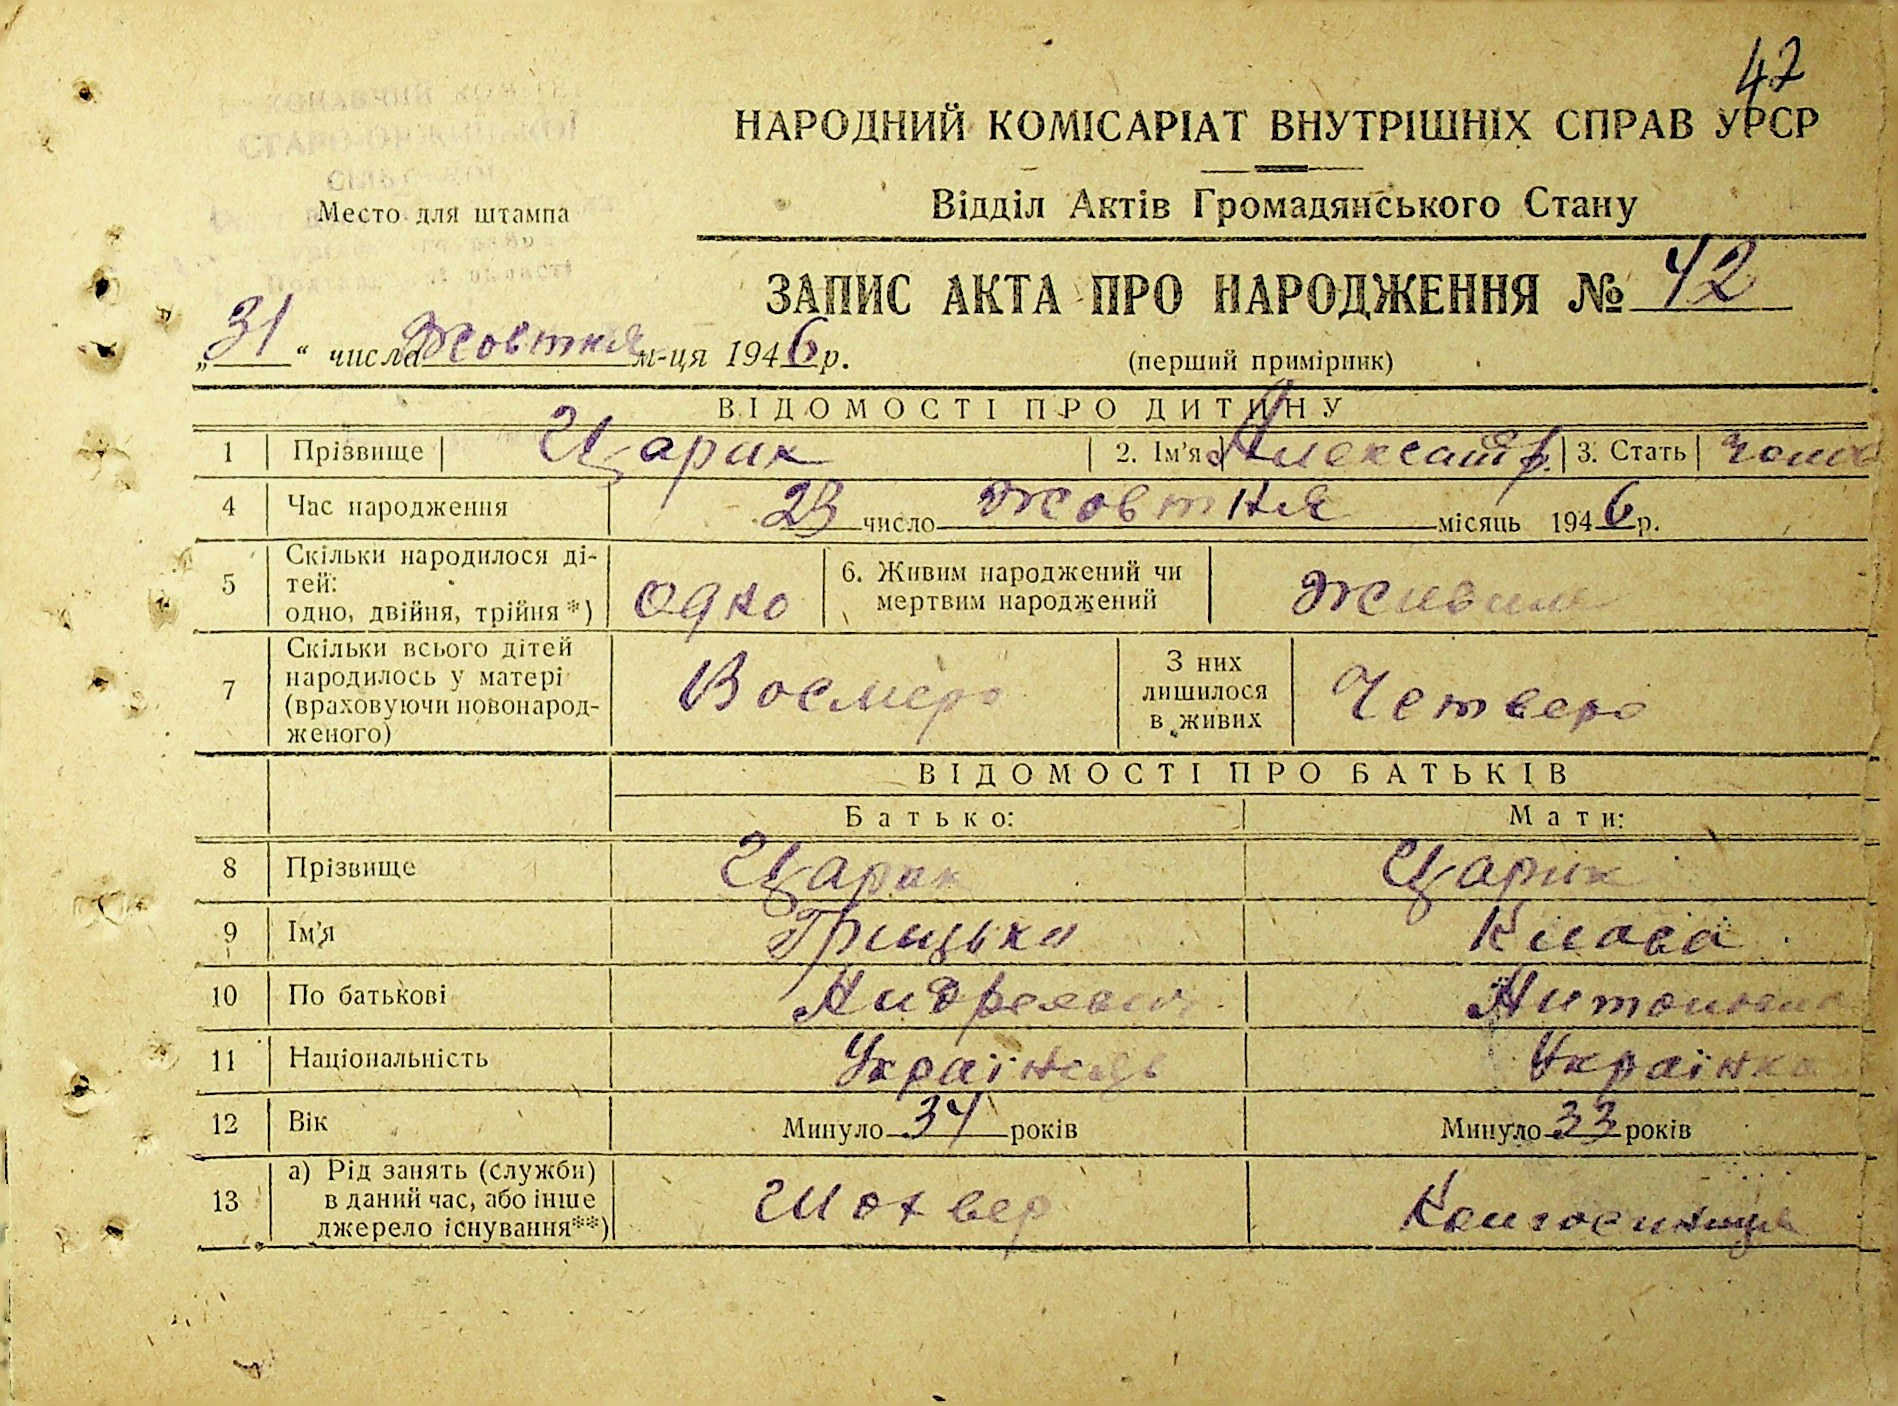 42
НАРОДНИЙ КОМІСАРІАТ ВНУТРІШНІХ СПРАВ УРСР
Відділ Актів Громадянського Стану
Место для штампа
ЗАПИС АКТА ПРО НАРОДЖЕННЯ № 42
„31“ числа Жовтня м-ця 1946 р.
(перший примірник)
ВІДОМОСТІ ПРО ДИТИНУ
1 Прізвище Царик 2. Ім’я Александр 3. Стать
4 Час народження 23 число Жовтня місяць 1946 р.
5 Скільки народилося ді-
тей:
одно, двійня, трійня*) одно
6. Живим народжений чи
мертвим народжений Живим
7 Скільки всього дітей
народилось у матері
(враховуючи новонарод-
женого) Восмеро
З них
лишилося
в живих Четверо
ВІДОМОСТІ ПРО БАТЬКІВ
Батько: Мати:
8 Прізвище Царик Царик
9 Ім’я Грицько Клава
10 По батькові Андреевич
11 Національність Українець Українка
12 Вік Минуло 34 років Минуло 33 років
13 а) Рід занять (служби)
в даний час, або інше
джерело існування**) Шохвер